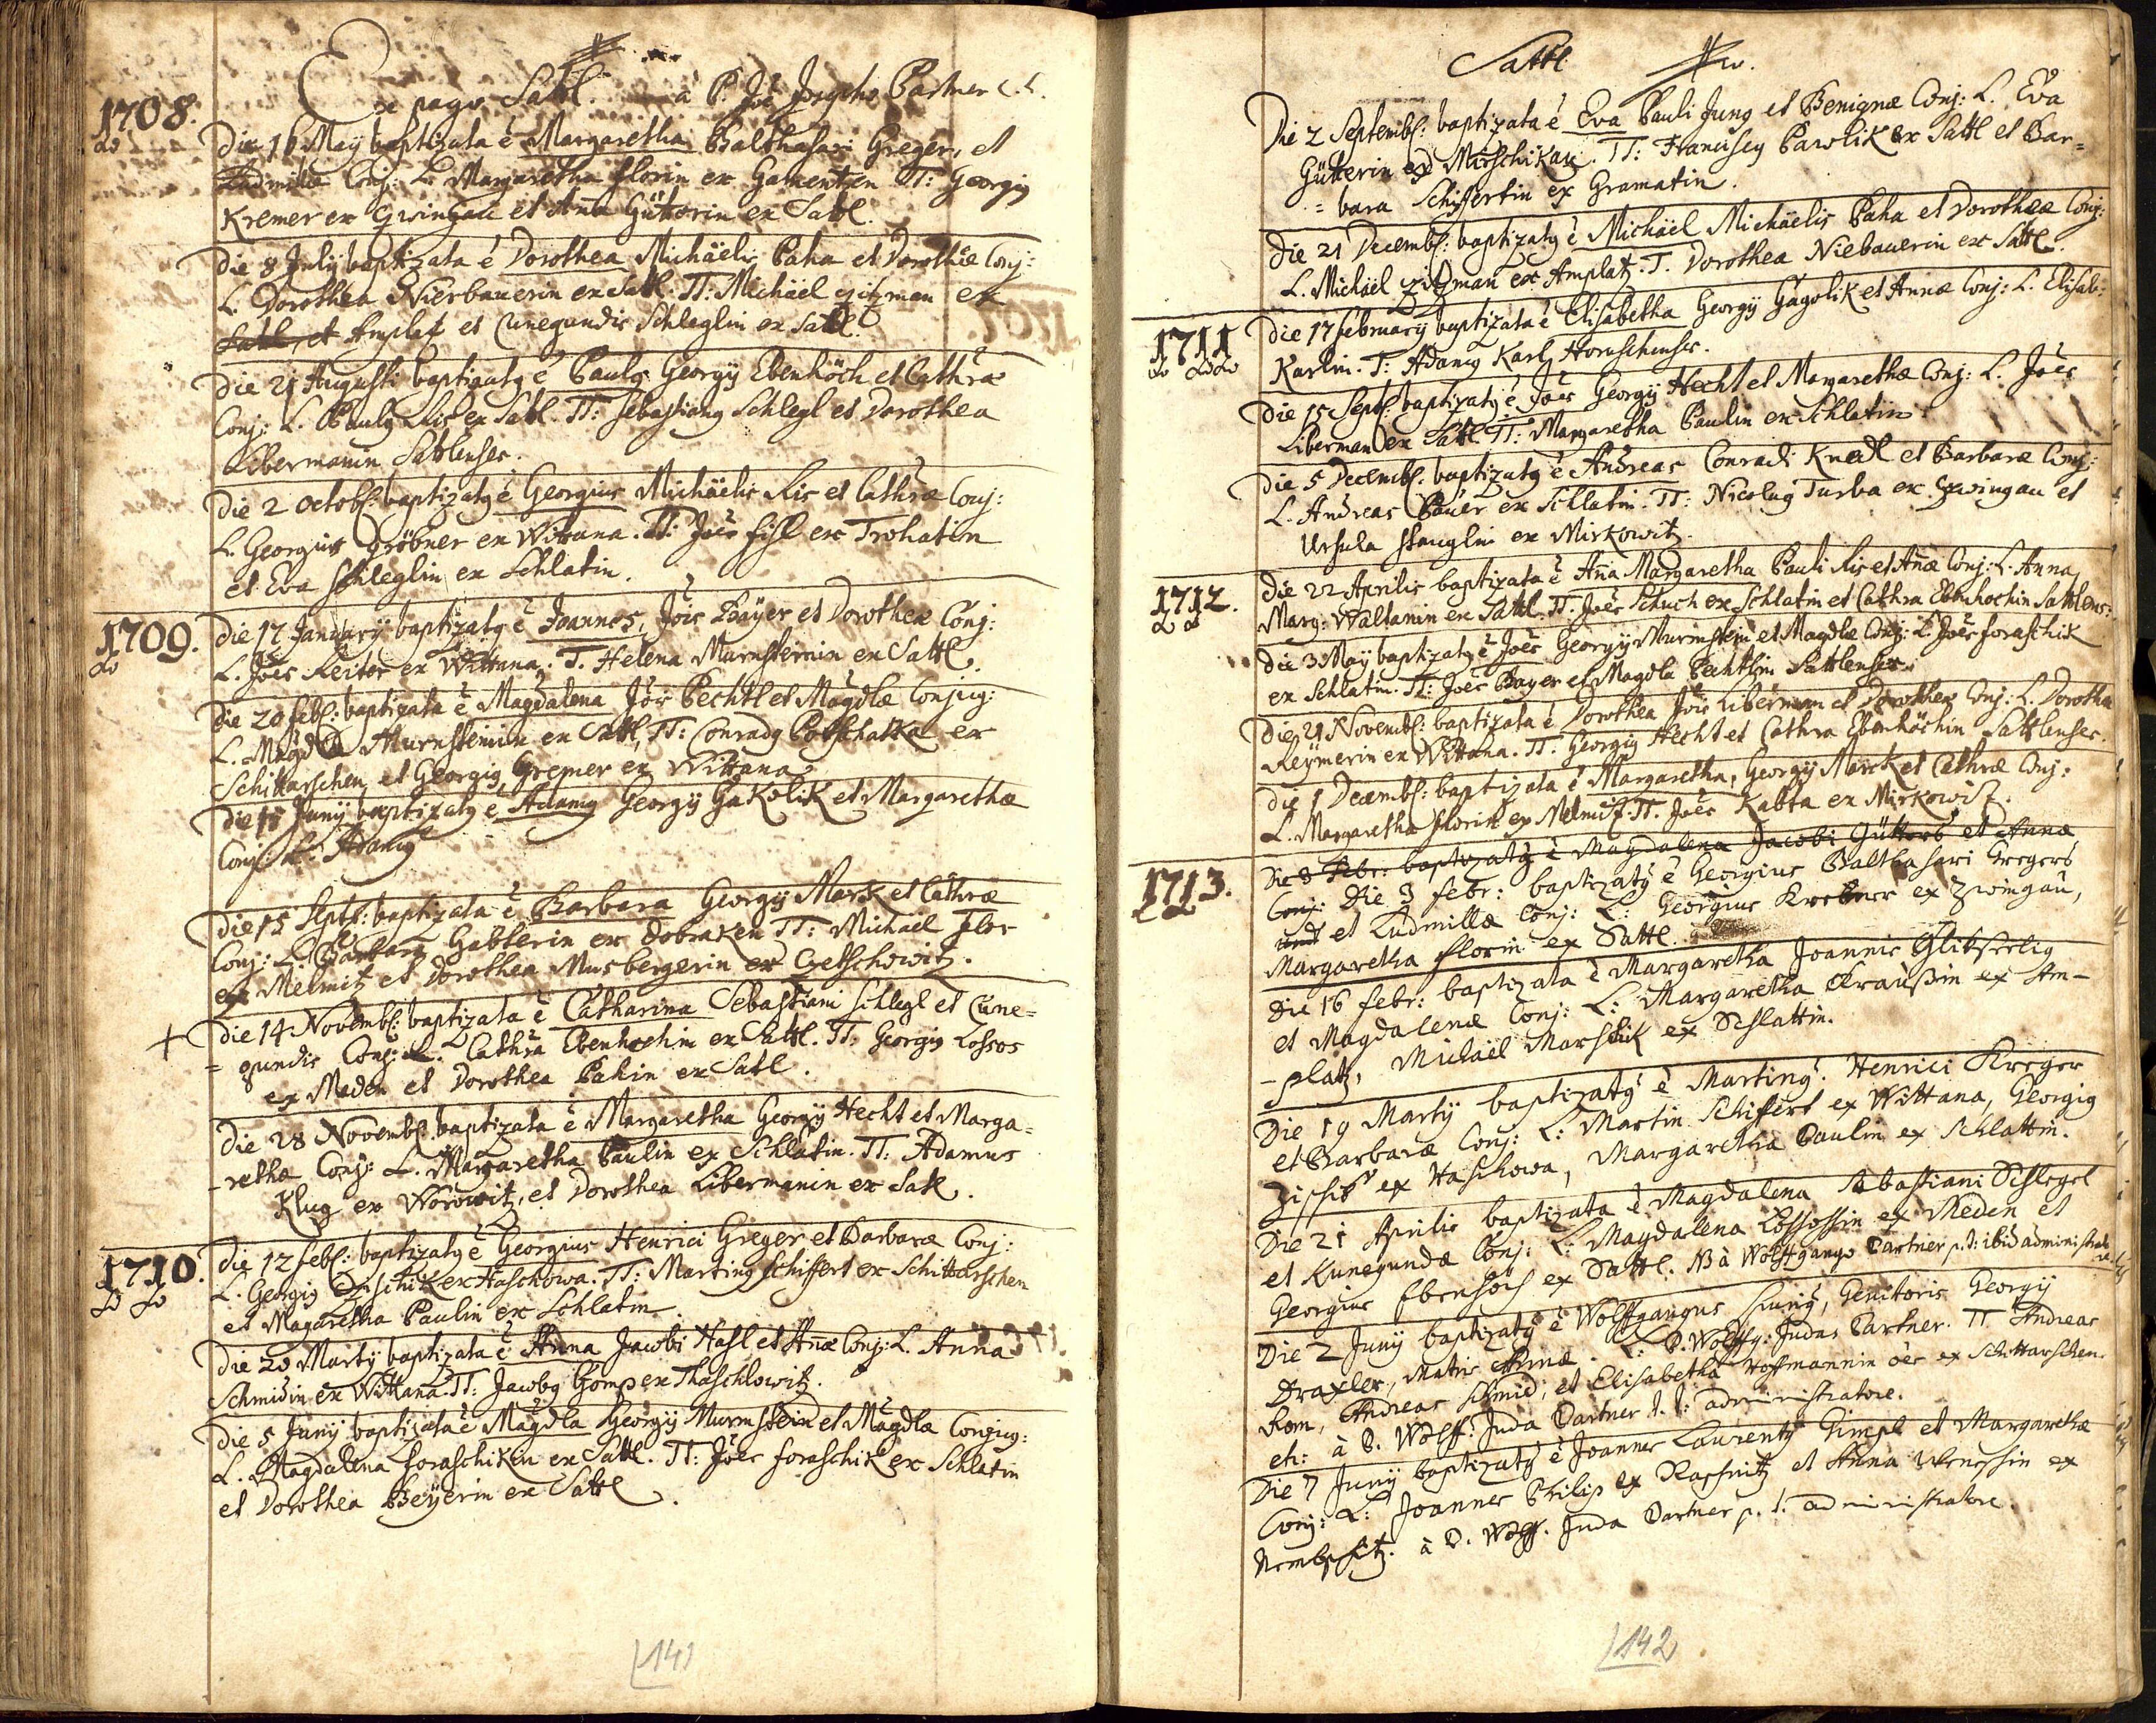 Ex pago Sattl. à P. Joē Josepho Partner C. L.
1708.
Die 16 Maÿ baptizata ē Margaretha Balthasari Greger, et
Ludmillæ Conj: L. Margaretha Florin ex Gamentzen T: Georgig
Kremer ex Gwingau et Anna Gütterin ex Sattl.
Die 8 Julÿ baptizata ē Dorothea Michäelis Paha et Dorotheæ Conj:
L. Dorothea Nierbauerin ex Sattl. TT: Michäel zitzman ex
Sattl, et Amplatz et Cunegundis Schleglin ex Sattl.
Die 21 Augusti baptizatg ē Paulg Georgÿ Ebenhöch et Cathræ
Conj: L. Paulg Ris ex Sattl. TT: Sebastiang Schlegl et Dorothea
Libermanin Sattlenses.
Die 2 Octobr: baptizatg ē Georgius Michäelis Ris et Cathræ Conj:
L. Georgius Gröbner ex Wittana. TT: Joēs Fisl ex Trohatin
et Eva Schleglin ex Schlatin.
1709.
Die 17 Januarÿ baptizatg ē Joannes, Jois Baÿer et Dorotheæ Conj:
L. Joēs Reiter ex Wittana. T. Helena Murnsteinin ex Sattl.
Die 20 Febr: baptizata ē Magdalena Jois Pechtl et Magdlæ Conjug:
L. Magdla Murnsteinin ex Sattl, TT: Conradg Potschatka ex
Schittarschen, et Georgig Gremer ex Wittana
Die 15 Junÿ baptizatg ē Adamg Georgÿ Gakolik et Margarethæ
Conj: L. Adamg
Die 15 Septb: baptizata ē Barbara Georgÿ Mark et Cathræ
Conj: L. Barbara Gablerin ex Dobraken TT: Michäel Flor
ex Melmitz et Dorothea Musbergerin ex Czetschowitz.
+ Die 14 Novembr: baptizata ē Catharina Sebastiani Schlegl et Cune=
= gundis Conj: L. Cathra Ebenhochin ex Sattl. TT: Georgig Lossos
ex Meden et Dorothea Pahin ex Satl.
Die 28 Novembr: baptizata ē Margaretha Georgÿ Hecht et Marga=
-rethæ Conj: L. Margaretha Paulin ex Schlatin. TT: Adamus
Klug ex Worowitz, et Dorothea Libermanin ex Satl.
1710.
Die 12 Febr: baptizatg ē Georgius Henrici Greger et Barbaræ Conj:
L. Georgig Zischik ex Haschowa. TT: Marting Schiffert ex Schittarschen
et Magaretha Paulin ex Schlatin.
Die 20 Martÿ baptizata ē Anna Jacobi Hasl et Annæ Conj: L. Anna
Schmidin ex Wittana. TT: Jacobg Gomp ex Thaschlowitz.
Die 5 Junÿ baptizata ē Magdla Georgÿ Murnstein et Magdlæ Conjug:
L. Magdalena Foraschikin ex Sattl. TT: Joēs Foraschik ex Schlatin
et Dorothea Beÿerin ex Sattl.
141
Sattl
Die 2 Septembr: baptizata ē Eva Pauli Jung et Benignæ Conj: L. Eva
Gütterin ex Mirschikau. TT: Hanusey Pawlik ex Sattl et Bar=
= bara Schiffertin ex Gramatin.
Die 21 Decembr: baptizatg ē Michäel Michäelis Paha et Dorotheæ Conj:
L. Michäel zitzman ex Amplatz. T. Dorothea Niebauerin ex Sattl.
1711
Die 17 Februarÿ baptizata ē Elisabetha Georgÿ Gagolik et Annæ Conj: L. Elisab:
Karlin. T: Adamg Karl Horuschenses.
Die 15 Septb: baptizatg ē Joēs Georgÿ Hecht et Margarethæ Conj: L. Joēs
Liberman ex Sattl. TT: Margaretha Paulin ex Schlatin.
Die 5 Decembr: baptizatg ē Andreas Conradi Knedl et Barbaræ Conj:
L. Andreas Pauer ex Schlatin. TT: Nicolag Turba ex Gwingau et
Ursula Stanglin ex Mirkowitz.
1712.
Die 22 Aprilis baptizata ē Anna Margaretha Pauli Ris et Annæ Conj: L. Anna
Marg: Waltanin ex Sattl. TT: Joēs Schuch ex Schlatin et Cathra Ebenhochin Sattlens:
Die 3 Maÿ baptizatg ē Joēs Georgÿ Murnstein et Magdlæ Conj: L. Joēs Foraschik
ex Schlatin. TT: Joēs Bayer et Magdla Pechtlin Sattlenses.
Die 21 Novembr: baptizata ē Dorothea Jois Liberman et Dorotheæ Conj: L. Dorothea
Reÿmerin ex Wittana. TT. Georgig Hecht et Cathra Ebenhöchin Sattlenses.
Die 1 Decembr: baptizata ē Margaretha, Georgÿ Marck et Cathræ Conj:
L. Margaretha Florin ex Melmitz. TT. Joēs Kabta ex Mirkowitz.
1713.
Die 3 Febr: baptizatg ē Magdalena Jacobi Gütters et Annæ
Conj: Die 3 Febr: baptizatg ē Georgius Balthasari Gregers
und et Ludmillæ Conj: L: Georgius Krebner ex Zwingau,
Margaretha Florin ex Sattl.
Die 16 Febr: baptizata ē Margaretha Joannis
et Magdalenæ Conj: L: Margaretha Kraußin ex Am-
-platz, Michäel Marschik ex Schlattin.
Die 19 Martÿ baptizatg ē Marting. Henrici Kreger
et Barbaræ Conj: L: Martin Schiffert ex Wittana, Georgig
Zischik ex Haschowa, Margaretha Paulin ex Schlattin.
Die 21 Aprilis baptizata ē Magdalena Sebastiani Schlegel
et Kunegundæ Conj: L: Magdalena Lossossin ex Meden et
Georgius Ebenhöch ex Sattl. NB à Wolffgango Partner p. t: ibid administrato
re
Die 2 Junÿ baptizatg ē Wolffgangus Genitoris Georgÿ
Draxler, Matris Annæ. L: P. Wolffg: Judas Partner. TT Andreas
Rom, Andreas Schmid, et Elisabetha Hofmannin oēs ex Schittarschen
etc: à P. Wolff: Juda Partner p. t: administratore.
Die 7 Junÿ baptizatg ē Joannes Laurentÿ Gimpl et Margarethæ
Conj: L: Joannes Philip ex Raschnitz et Anna ex
à P. Wolff. Juda Partner p. t. administratore.
142